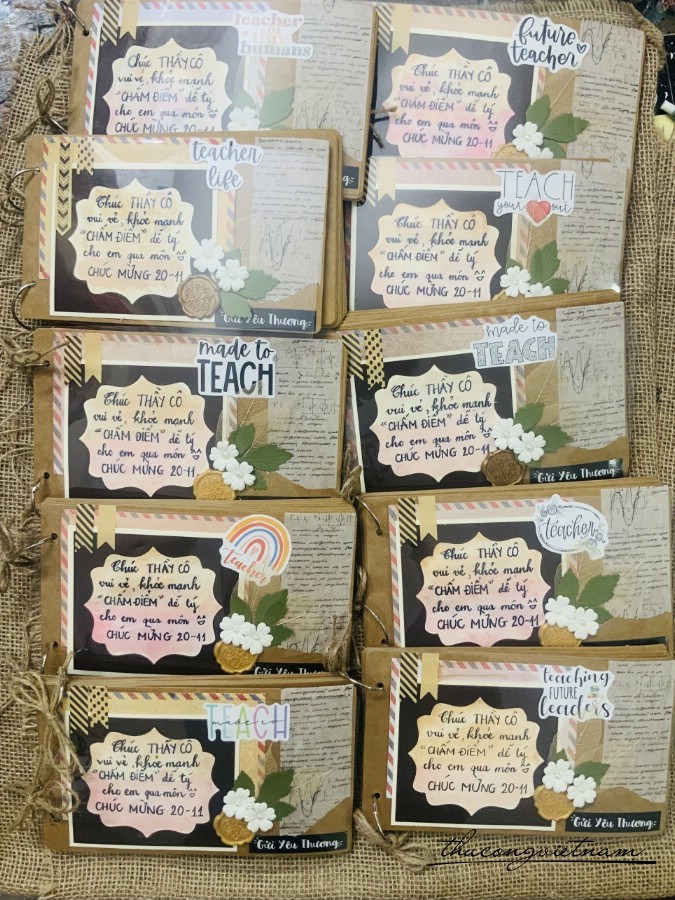 teacher
humans
Chúc THẦY CÔ
vui vẻ, khỏe mạnh
"CHẤM ĐIỂM" dễ tý
cho em qua môn
CHÚC MỪNG 20-11
future
teacher
Chúc THẦY CÔ
vui vẻ, khỏe mạnh
"CHẤM ĐIỂM" dễ tý
cho em qua môn
CHÚC MỪNG 20-11
teacher
life
Chúc THẦY CÔ
vui vẻ, khỏe mạnh
"CHẤM ĐIỂM" dễ tý
cho em qua môn
CHÚC MỪNG 20-11
Gửi Yêu Thương
TEACH
your out
Chúc THẦY CÔ
vui vẻ, khỏe mạnh
"CHẤM ĐIỂM" dễ tý
cho em qua môn
CHÚC MỪNG 20-11
made to
TEACH
Chúc THẦY CÔ
vui vẻ, khỏe mạnh
"CHẤM ĐIỂM" dễ tý
cho em qua môn
CHÚC MỪNG 20-11
made to
TEACH
Chúc THẦY CÔ
vui vẻ, khỏe mạnh
"CHẤM ĐIỂM" dễ tý
cho em qua môn
CHÚC MỪNG 20-11
Gửi Yêu Thương
teacher
Chúc THẦY CÔ
vui vẻ, khỏe mạnh
"CHẤM ĐIỂM" dễ tý
cho em qua môn
CHÚC MỪNG 20-11
Gửi Yêu Thương
teacher
Chúc THẦY CÔ
vui vẻ, khỏe mạnh
"CHẤM ĐIỂM" dễ tý
cho em qua môn
CHÚC MỪNG 20-11
made to
TEACH
Chúc THẦY CÔ
vui vẻ, khỏe mạnh
"CHẤM ĐIỂM" dễ tý
cho em qua môn
CHÚC MỪNG 20-11
Gửi Yêu Thương
teaching
FUTURE
leaders
Chúc THẦY CÔ
vui vẻ, khỏe mạnh
"CHẤM ĐIỂM" dễ tý
cho em qua môn
CHÚC MỪNG 20-11
Gửi Yêu Thương
thucongvietnam